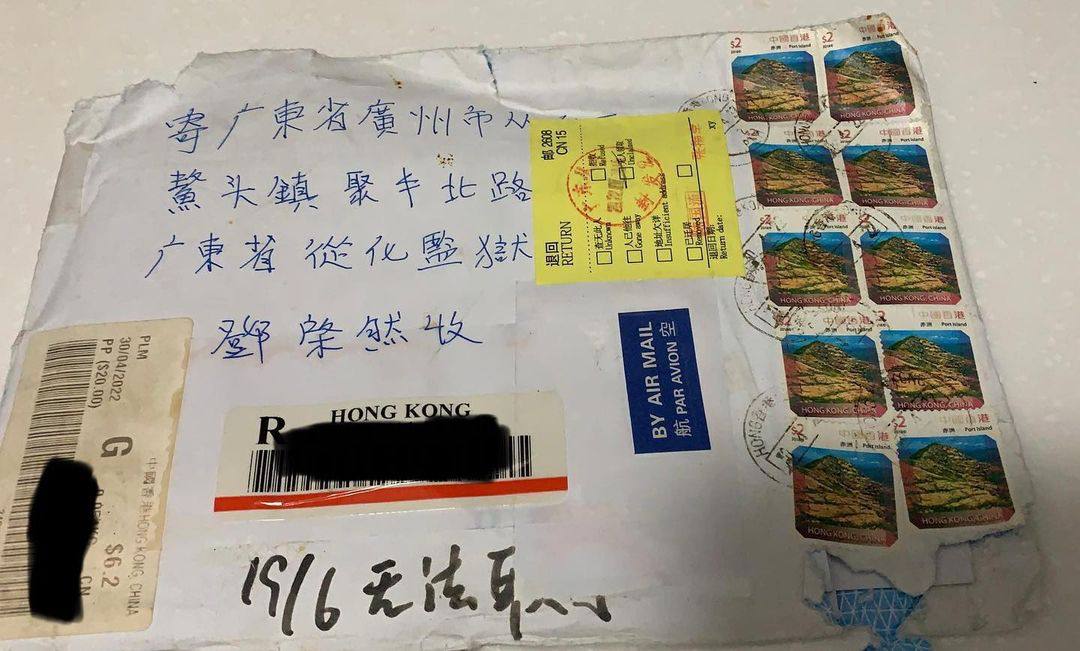 寄广東省廣州市从
鰲头鎮 聚丰北路
广東省 從化監獄
鄧棨然收
邮 2608
CN 15
退回
RETURN
查无此人
Unknown
拒收
Refused
人已他往
Gone away
无人领取
Unclaimed
地址欠详
Insufficient address
已迁居
Removed
退回日期:
Return date:
BY AIR MAIL
航 PAR AVION 空
R
HONG KONG
PLM
30/04/2022
PP ($20.00)
G
中國香港 HONG KONG, CHINA
$6.2
CN
19/6 无法
$2
中國香港
赤洲 Port Island
$2
中國香港
赤洲 Port Island
HONG KONG, CHINA
$2
中國香港
赤洲 Port Island
HONG KONG, CHINA
$2
中國香港
赤洲 Port Island
HONG KONG, CHINA
$2
中國香港
赤洲 Port Island
HONG KONG, CHINA
$2
中國香港
赤洲 Port Island
HONG KONG, CHINA
$2
中國香港
赤洲 Port Island
HONG KONG, CHINA
$2
中國香港
赤洲 Port Island
HONG KONG, CHINA
$2
中國香港
赤洲 Port Island
HONG KONG, CHINA
$2
中國香港
赤洲 Port Island
HONG KONG, CHINA